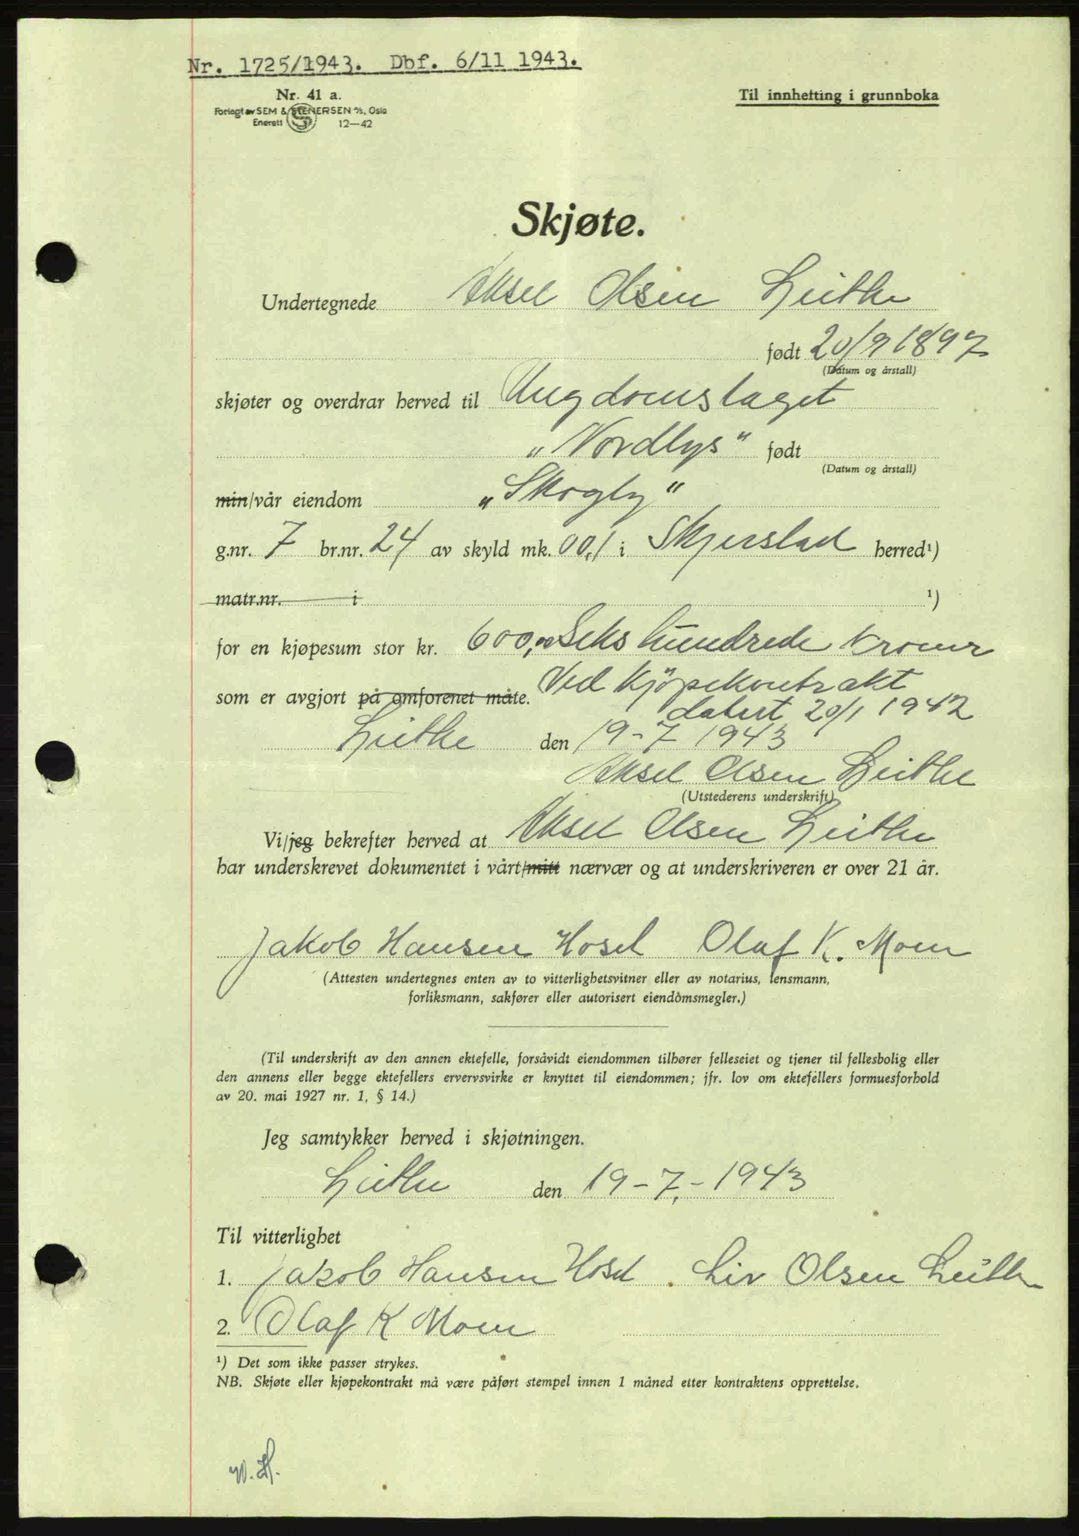 Nr. 1725/1943. Dbf. 6/11 1943.
Nr. 41 a.
Forlagt av SEM & STENERSEN A/S, Oslo
Enerett S 12—42
Til innhetting i grunnboka
Skjøte.
Undertegnede Aksel Olsen Leithe
født 20/9 1897
(Datum og årstall)
skjøter og overdrar herved til Ungdomslaget
"Nordlys" født
(Datum og årstall)
min/vår eiendom "Skogly"
g.nr. 7 br.nr. 24 av skyld mk. 00,1 i Skjerstad herred¹)
matr.nr. i ¹)
for en kjøpesum stor kr. 600,00 Seks hundrede kroner
som er avgjort på omforenet måte. Ved Kjöpekontrakt
datert 20/1 1942
Leithe den 19-7 1943
Aksel Olsen Leithe
(Utstederens underskrift)
Vi/jeg bekrefter herved at Aksel Olsen Leithe
har underskrevet dokumentet i vårt/mitt nærvær og at underskriveren er over 21 år.
Jakob Hansen Hosel Olaf K. Moen
(Attesten undertegnes enten av to vitterlighetsvitner eller av notarius, lensmann,
forliksmann, sakfører eller autorisert eiendomsmegler.)
(Til underskrift av den annen ektefelle, forsåvidt eiendommen tilhører felleseiet og tjener til fellesbolig eller
den annens eller begge ektefellers ervervsvirke er knyttet til eiendommen; jfr. lov om ektefellers formuesforhold
av 20. mai 1927 nr. 1, § 14.)
Jeg samtykker herved i skjøtningen.
Leithe den 19-7.-1943
Til vitterlighet
1. Jakob Hansen Hosel. Liv Olsen Leithe
2. Olaf K Moen
¹) Det som ikke passer strykes.
NB. Skjøte eller kjøpekontrakt må være påført stempel innen 1 måned etter kontraktens opprettelse.